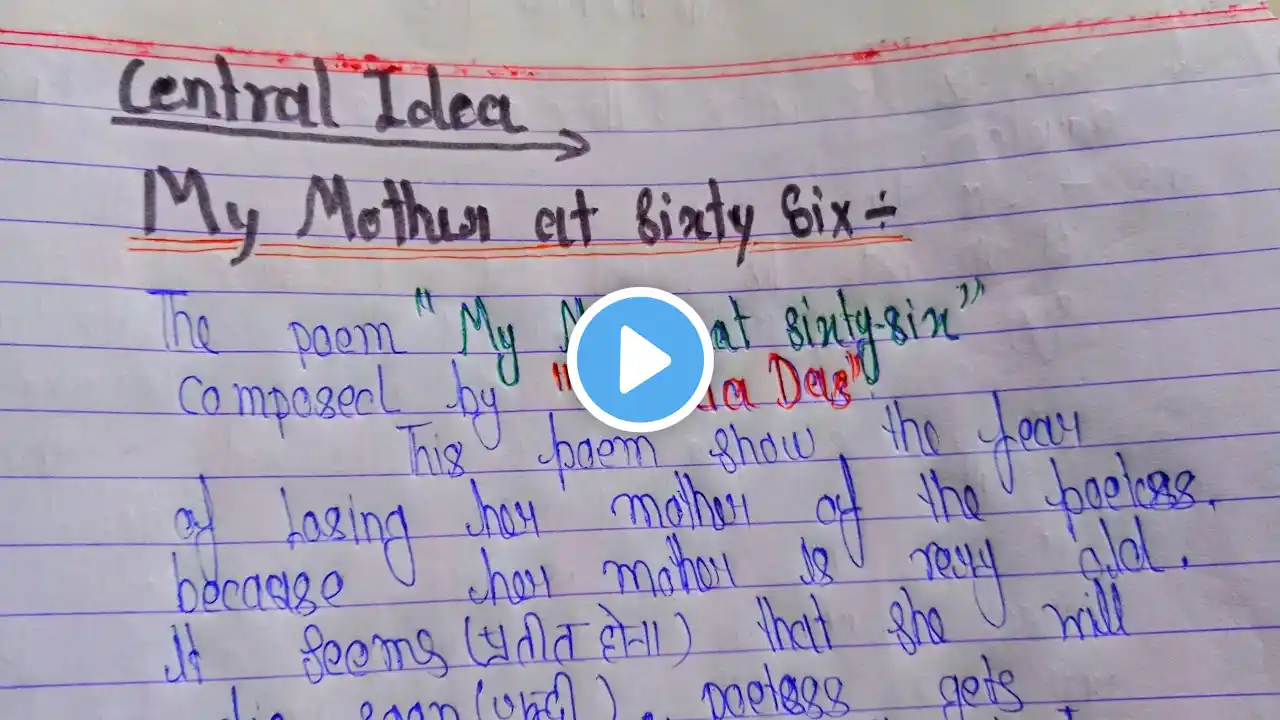 Central Idea
My Mother at Sixty Six ÷
The poem "My at sixty-six"
composed by " Das"
This poem show the fear
of losing her mother of the poetess.
because her mother is very old.
It seems (प्रतीत होना) that she will
die soon (जल्दी). poetess gets